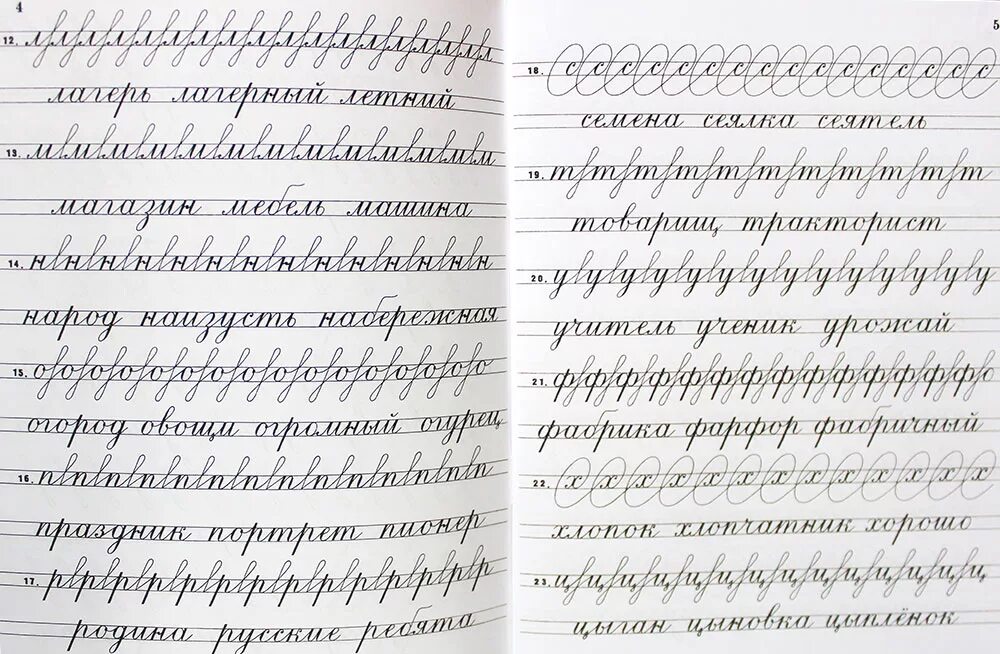 4
12. л л л л л л л л л л л л л л л л л
лагерь лагерный летний
13. м м м м м м м м м м м м м
магазин мебель машина
14. н н н н н н н н н н н н н
народ наизусть набережная
15. о о о о о о о о о о о о о о о о
огород овощи огромный огурец
16. п п п п п п п п п п п п п
праздник портрет пионер
17. р р р р р р р р р р р р р р
родина русские ребята
5
18. с с с с с с с с с с с с с с с с
семена сеялка сеятель
19. т т т т т т т т т т т т
товарищ тракторист
20. у у у у у у у у у у у у у у у
учитель ученик урожай
21. ф ф ф ф ф ф ф ф ф ф ф ф ф ф
фабрика фарфор фабричный
22. х х х х х х х х х х х х х
хлопок хлопчатник хорошо
23. ц ц ц ц ц ц ц ц ц ц ц ц ц ц
цыган цыновка цыплёнок